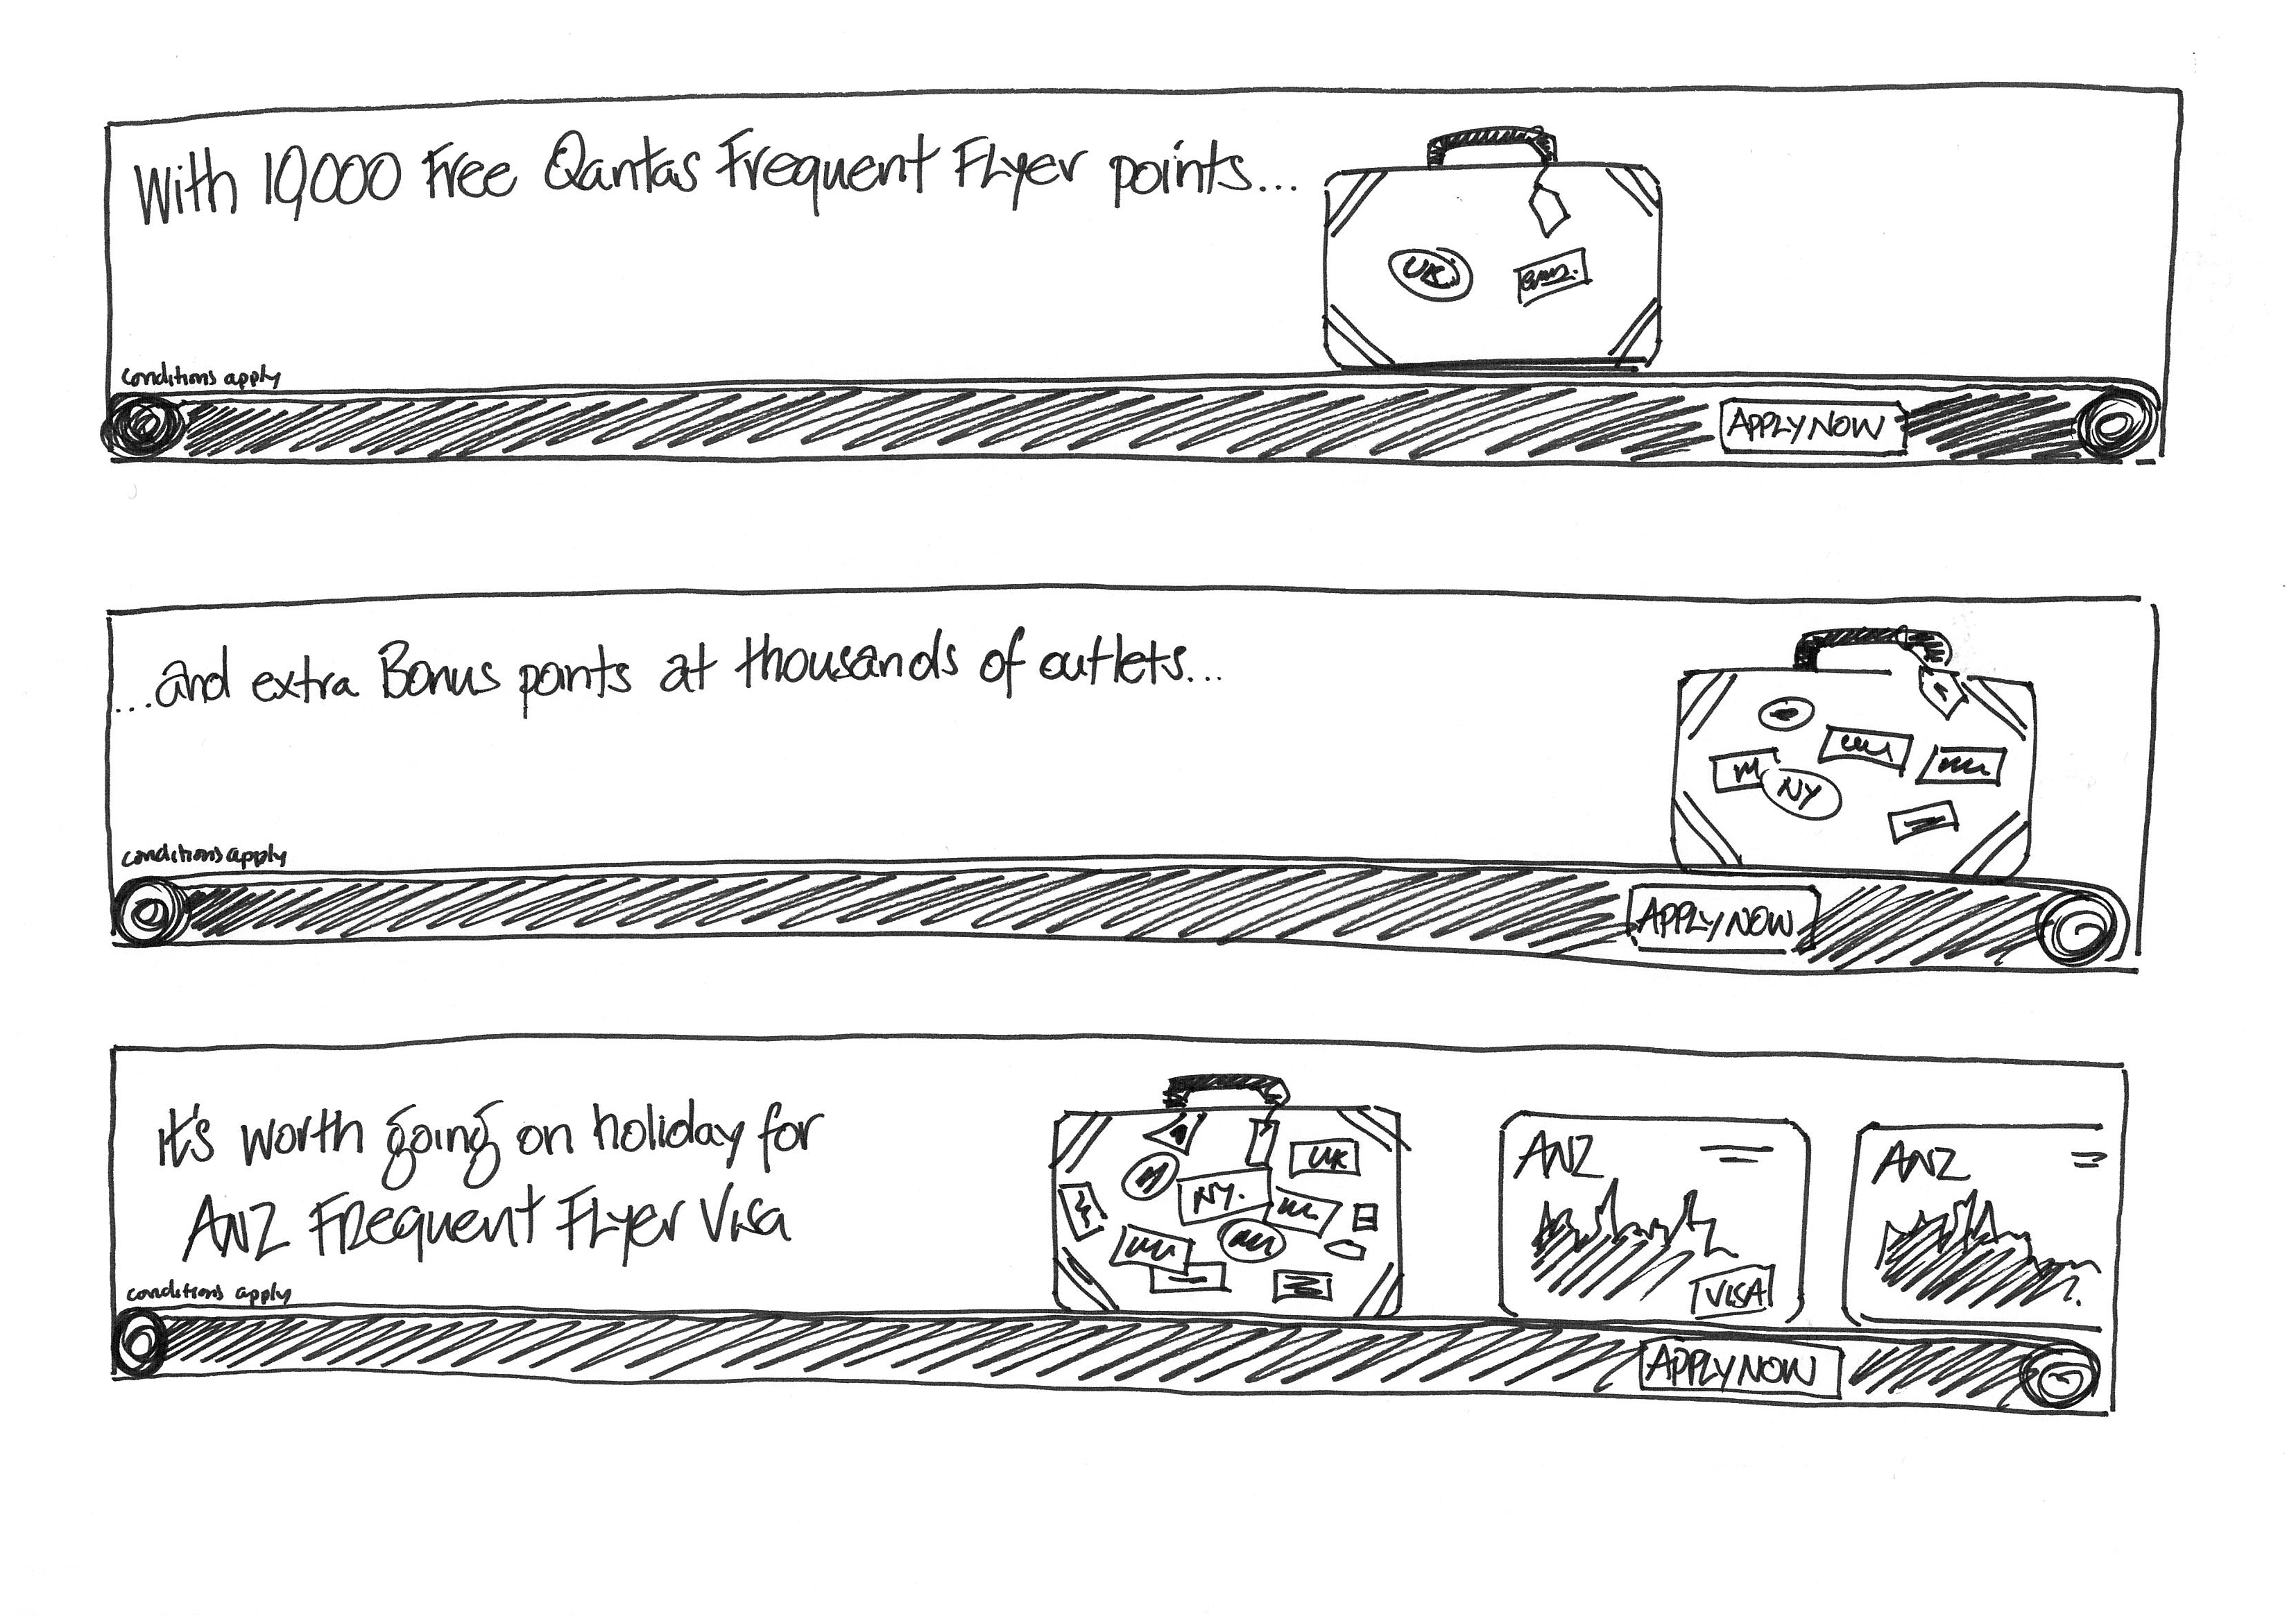 With 10,000 Free Qantas Frequent Flyer points...
UK
conditions apply
APPLY NOW
...and extra Bonus points at thousands of outlets...
NY
conditions apply
APPLY NOW
it's worth going on holiday for
ANZ Frequent Flyer Visa
UK
NY.
ANZ
VISA
ANZ
conditions apply
APPLY NOW